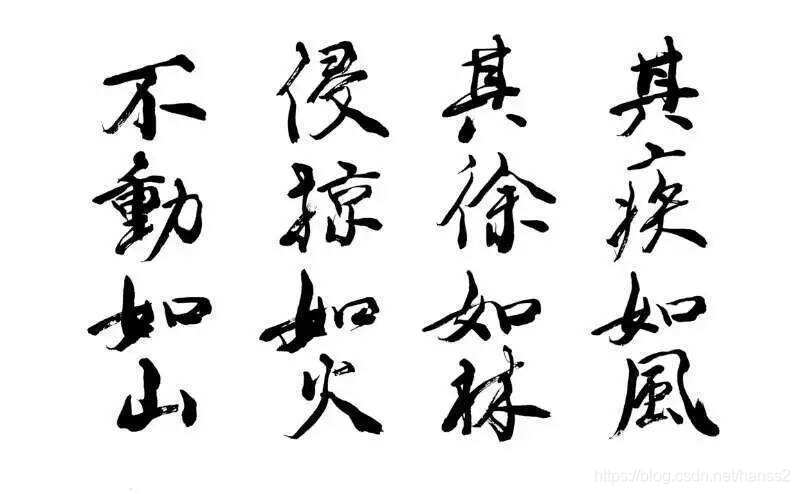 其疾如風
其徐如林
侵掠如火
不動如山
https://blog.csdn.net/hanss2